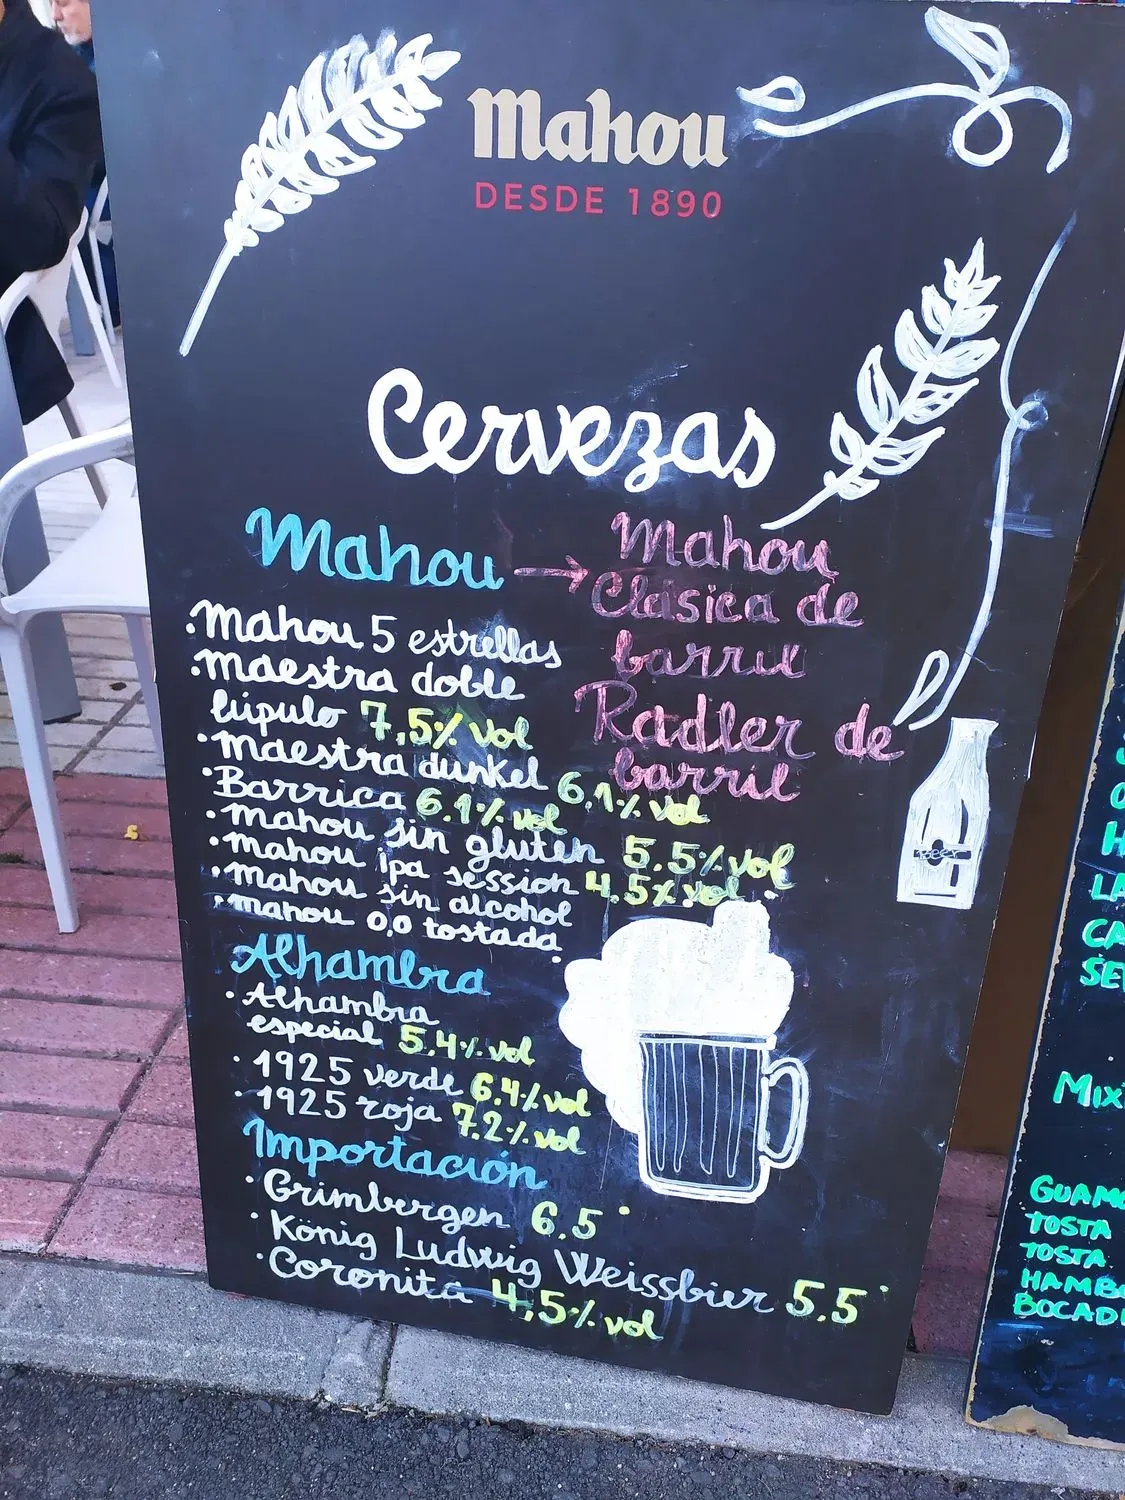 Mahou
DESDE 1890
Cervezas
Mahou →
Mahou
Clásica de
barril
Radler de
barril
·Mahou 5 estrellas
·Maestra doble
lúpulo 7,5% vol
·Maestra dunkel 6,1% vol
·Barrica 6.1% vol
·Mahou sin gluten 5.5% vol
·Mahou ipa session 4,5% vol
·Mahou sin alcohol
·Mahou 0,0 tostada
Alhambra
·Alhambra
especial 5.4% vol
·1925 verde 6.4% vol
·1925 roja 7.2% vol
Importación
·Grimbergen 6.5°
·König Ludwig Weissbier 5.5°
·Coronita 4,5% vol
BEER
GUAM
TOSTA
TOSTA
HAMB
BOCADI